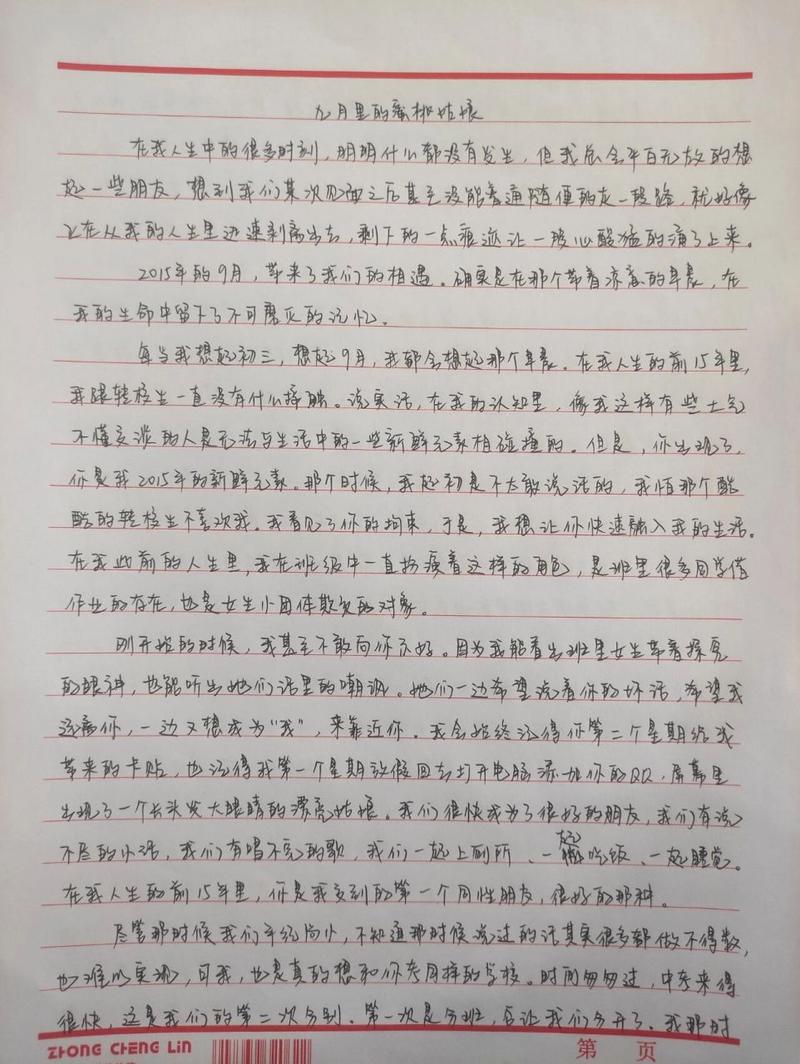 九月里的蜜桃姑娘
在我人生中的很多时刻，明明什么都没有发生，但我总会平白无故的想
起一些朋友，想到我们某次见面之后甚至没能普通随便的走一段路，就好像
正在从我的人生里迅速剥离出去，剩下的一点痕迹让一股心酸猛的涌了上来。
2015年的9月，带来了我们的相遇。确实是在那个带着凉意的早晨，在
我的生命中留下了不可磨灭的记忆。
每当我想起初三，想起9月，我都会想起那个早晨。在我人生的前15年里，
我跟转校生一直没有什么接触。说实话，在我的认知里，像我这样有些土气
不懂交谈的人是无法与生活中的一些新鲜元素相碰撞的。但是，你出现了，
你是我2015年的新鲜元素。那个时候，我起初是不太敢说话的，我怕那个酷
酷的转校生不喜欢我。我看见了你的拘束，于是，我想让你快速融入我的生活。
在我此前的人生里，我在班级中一直扮演着这样的角色，是班里很多同学借
作业的存在，也是女生小团体欺负的对象。
刚开始的时候，我甚至不敢向你示好。因为我能看出班里女生带着探究
的眼神，也能听出她们话里的嘲讽。她们一边希望说着你的坏话，希望我
远离你，一边又想成为“我”，来靠近你。我会始终记得你第二个星期给我
带来的卡贴，也记得我第一个星期放假回去打开电脑添加你的QQ，屏幕里
出现了一个长头发大眼睛的漂亮姑娘。我们很快成为了很好的朋友，我们有说
不尽的小话，我们有唱不完的歌，我们一起上厕所、一起吃饭、一起睡觉。
在我人生的前15年里，你是我交到的第一个同性朋友，很好的那种。
尽管那时候我们年纪尚小，不知道那时候说过的话其实很多都做不得数，
也难以实现，可我，也是真的想和你考同样的学校。时间匆匆过，中考来得
很快，这是我们的第二次分别。第一次是分班，后让我们分开了。我那时
ZHONG CHENG LIN
第 页